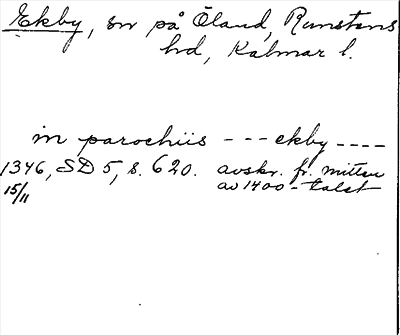 Ekby, sn på Öland, Runstens
hd, Kalmar l.
in parochiis --- ekby ----
1346, SD 5, s. 620. avskr. fr. mitten
15/11 av 1400-talet